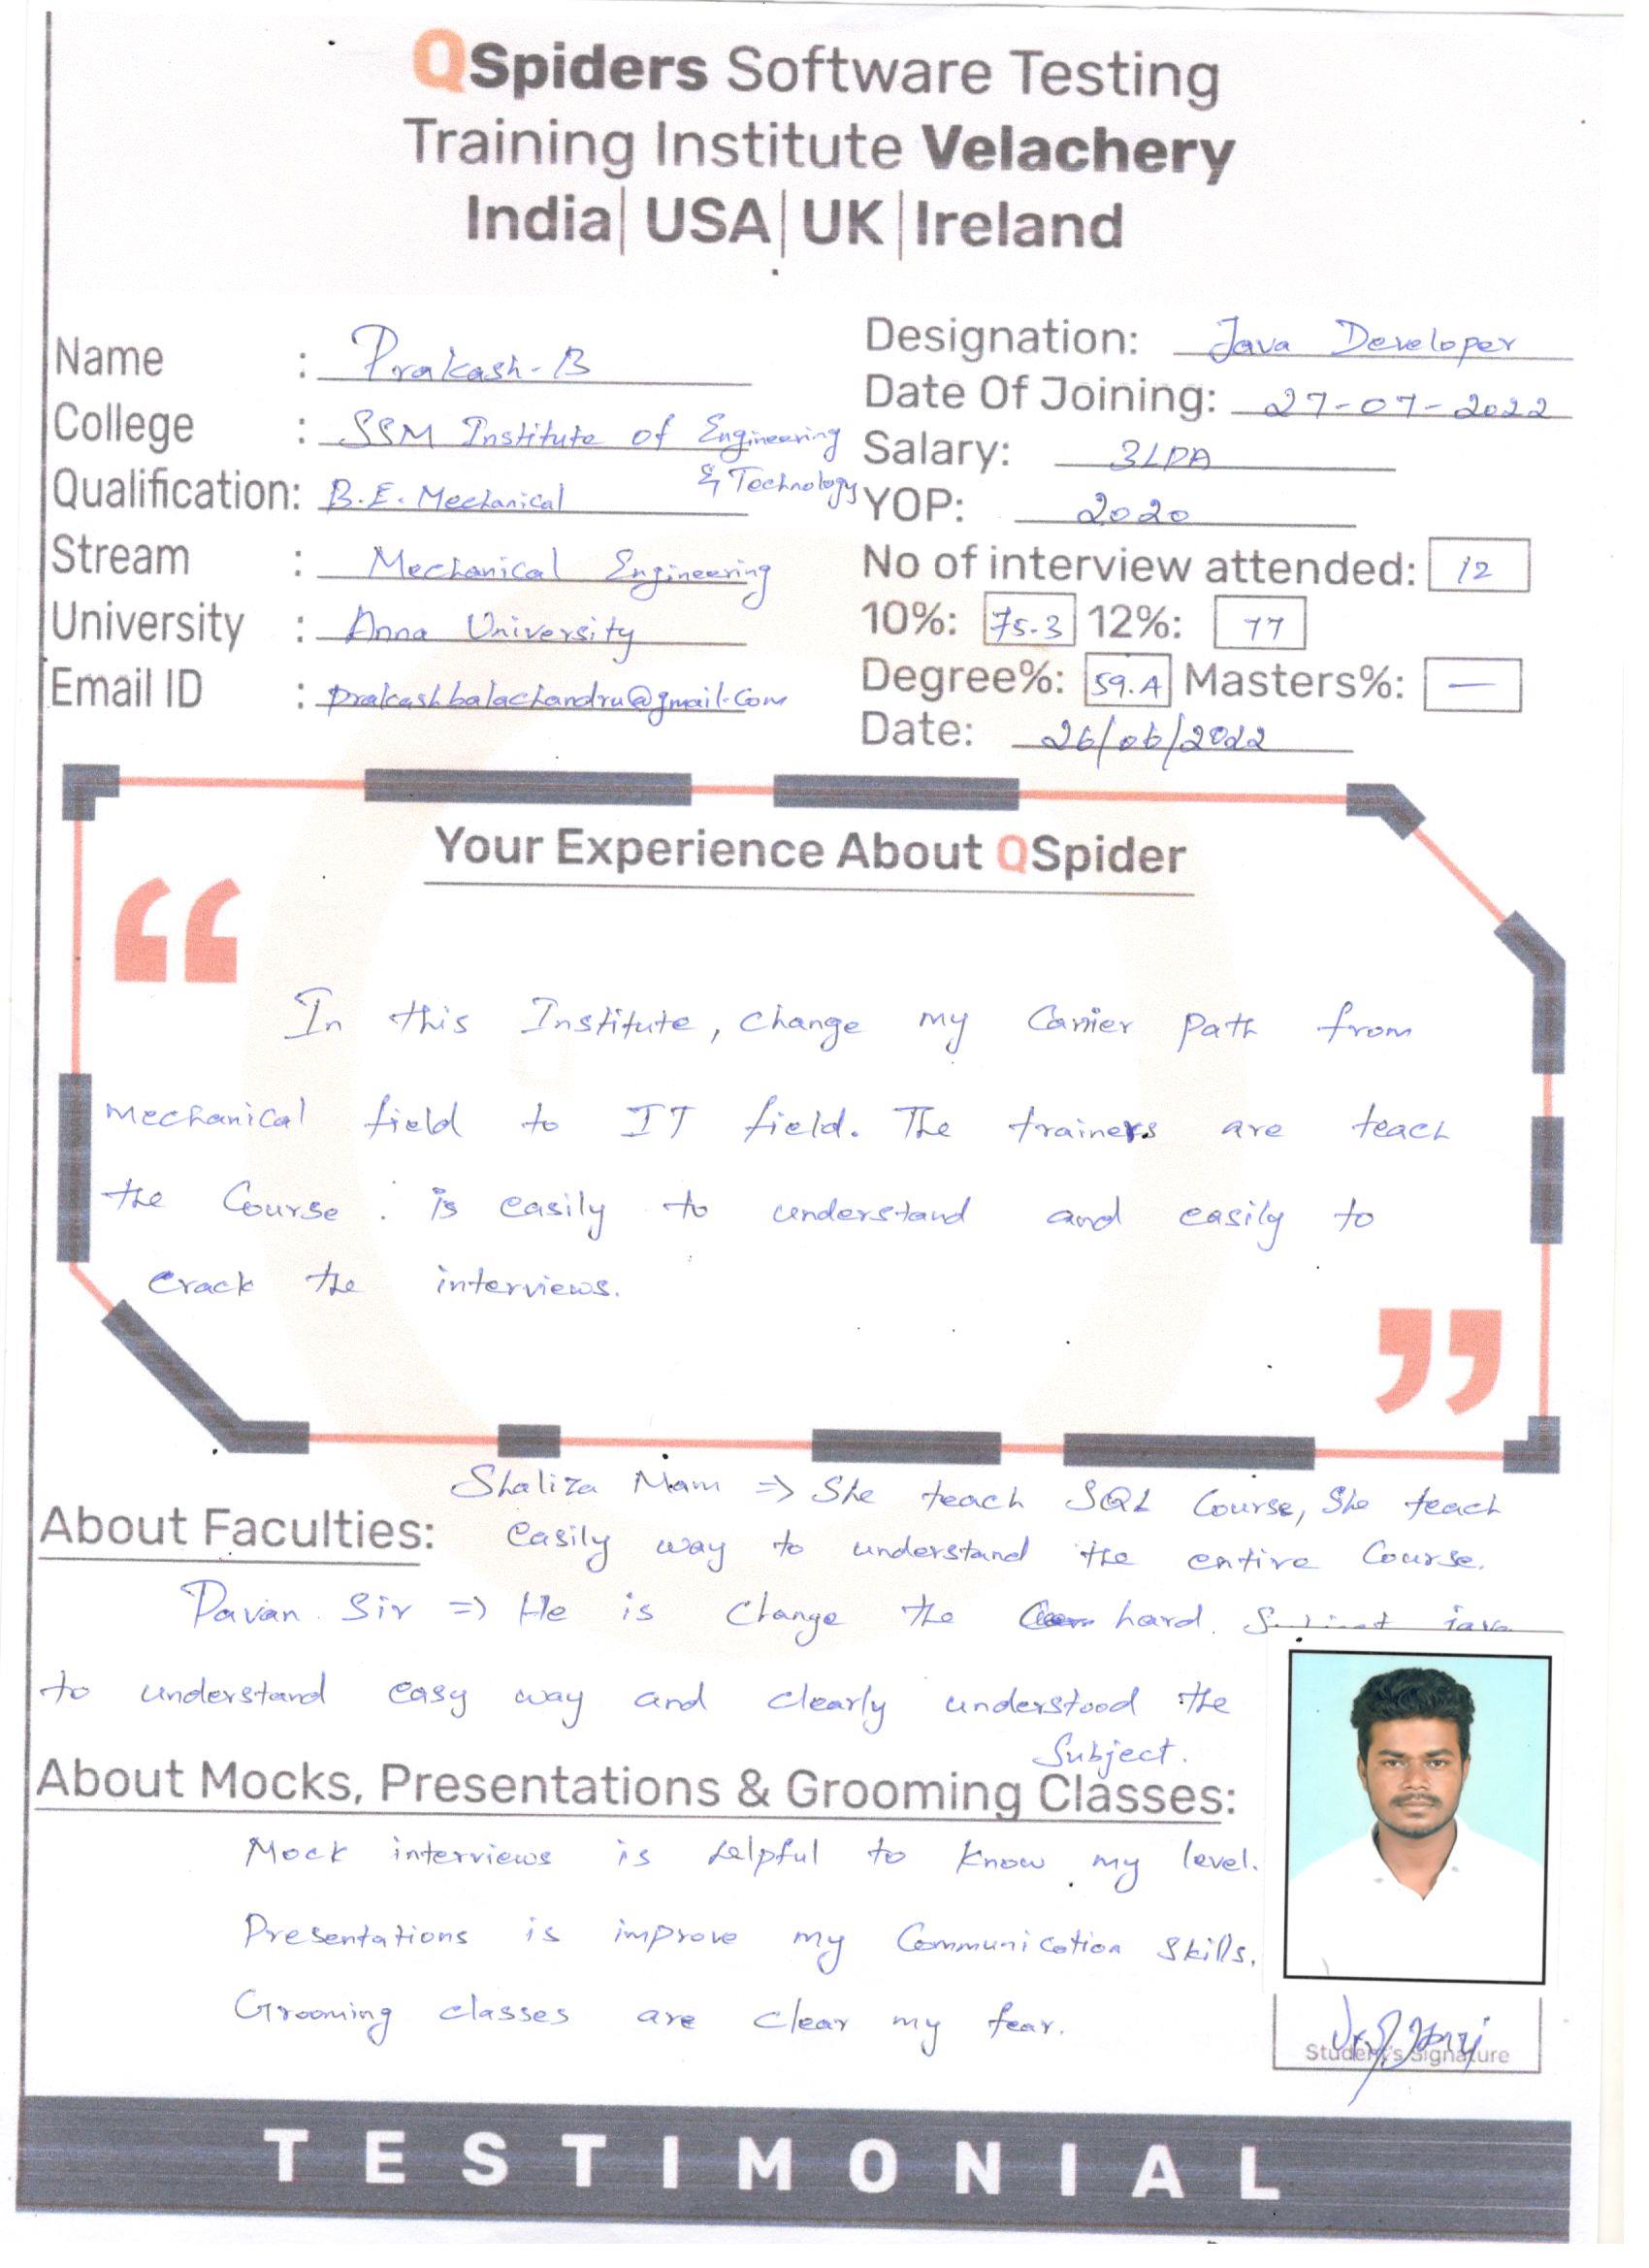 QSpiders Software Testing
Training Institute Velachery
India| USA| UK |Ireland
Name : Prakash-B
College : SSM Institute of Engineering
& Technology
Qualification: B.E. Mechanical
Stream : Mechanical Engineering
University : Anna University
Email ID : prakashbalachandru@gmail.com
Designation: Java Developer
Date Of Joining: 27-07-2022
Salary: 3LPA
YOP: 2020
No of interview attended: 12
10%: 75.3 12%: 77
Degree%: Masters%: —
Date: 26/06/2022
Your Experience About QSpider
“
In this Institute, change my Carrier path from
mechanical field to IT field. The trainers are teach
the Course. is easily to understand and easily to
crack the interviews.
”
Shaliza Mam => She teach SQL Course, She teach
About Faculties: easily way to understand the entire Course.
Pavan Sir => He is change the hard. Subject java
to understand easy way and clearly understood the
Subject.
About Mocks, Presentations & Grooming Classes:
Mock interviews is helpful to know my level.
Presentations is improve my Communication skills.
Grooming classes are clear my fear.
Student's Signature
TESTIMONIAL